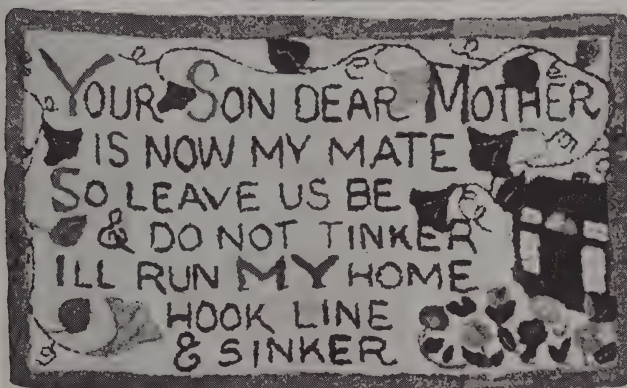 YOUR SON DEAR MOTHER
IS NOW MY MATE
SO LEAVE US BE
& DO NOT TINKER
ILL RUN MY HOME
HOOK LINE
& SINKER